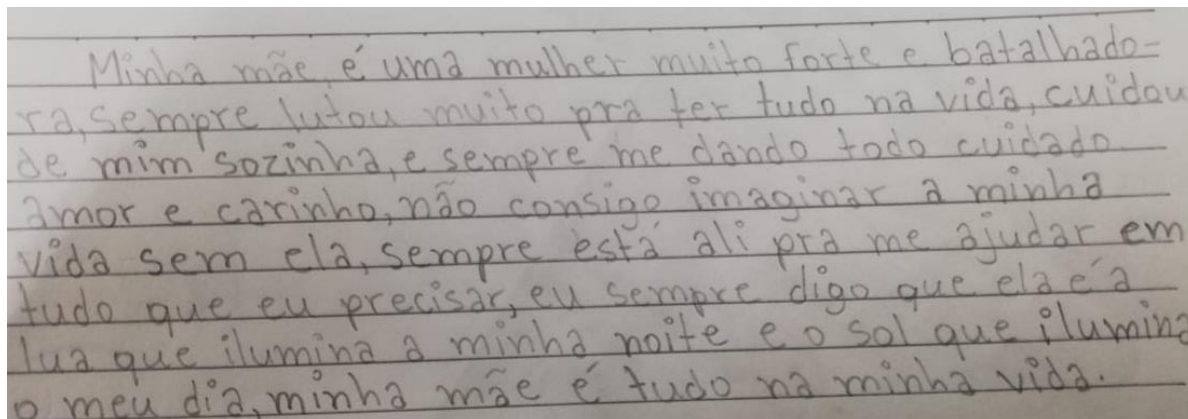 Minha mãe, é uma mulher muito forte e batalhado=
ra, sempre lutou muito pra ter tudo na vida, cuidou
de mim sozinha, e sempre me dando todo cuidado
amor e carinho, não consigo imaginar a minha
vida sem ela, sempre está ali pra me ajudar em
tudo que eu precisar, eu sempre digo que ela é a
lua que ilumina a minha noite e o sol que ilumina
o meu dia, minha mãe é tudo na minha vida.